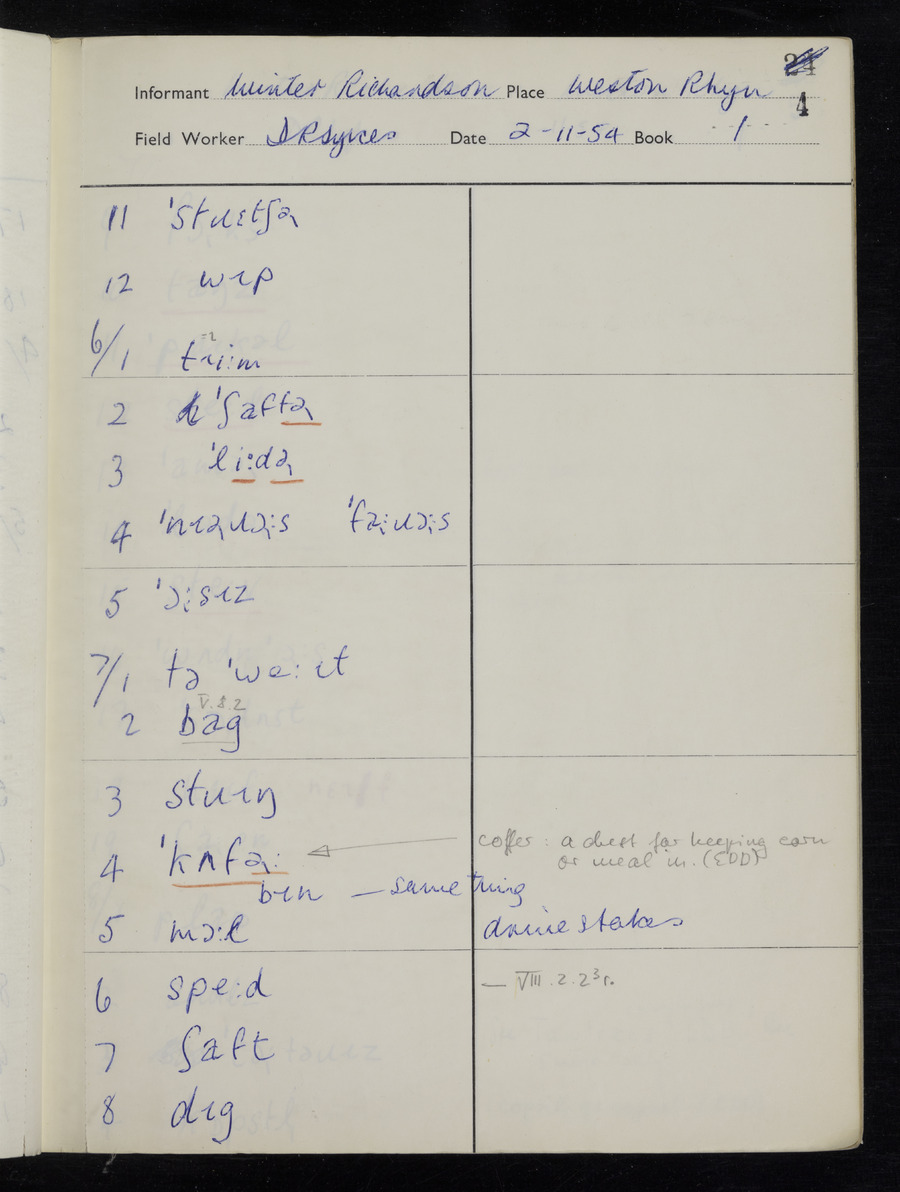 24
Informant Winter Richardson Place Weston Rhyn 4
Field Worker D R Sykes Date 2-11-54 Book 1
11 ˈstɹɛtʃə˞
12 wɪp
6/1 tɹi:m
2 ˈʃaftə˞
3 ˈli:də˞
4 ˈnɪə˞ɹə:s ˈfə˞:ɹə:s
5 ˈə˞:sɪz
7/1 tə ˈwe:ɪt
V.8.2
2 bag
3 stɹɪŋ
4 ˈkʌfə˞: coffer: a chest for keeping corn
or meal in. (EDD)
bɪn — same thing
5 mɔ:l drive stakes
6 spe:d — VIII.2.2³r.
7 ʃaft
8 dɪg